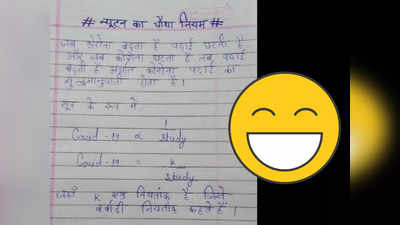 # न्यूटन का चौथा नियम #
जब कोरोना बढ़ता है पढ़ाई घटती है
और जब कोरोना घटता है तब पढ़ाई
बढ़ती है अर्थात कोरोना पढ़ाई का
व्युत्क्रमानुपाती होता है।
सूत्र के रूप में
Covid-19 ∝ 1/study
Covid-19 = k/study
जहाँ K एक नियतांक है जिसे
बर्बादी नियतांक कहते हैं।